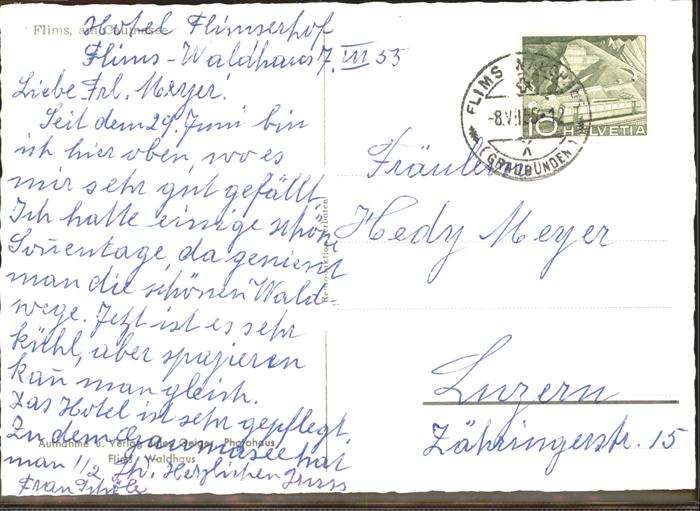 Hotel Flimserhof
Flims, am Caumasee
Flims-Waldhaus 7. VII 55
Liebe Frl. Meyer!
Seit dem 29. Juni bin
ich hier oben, wo es
mir sehr gut gefällt.
Ich hatte einige schöne
Sonnentage, da geniesst
man die schönen Wald-
wege. Jetzt ist es sehr
kühl, aber spazieren
kan̄ man gleich.
Das Hotel ist sehr gepflegt.
Zu dem Caumasee hat
man 1/2 Herzlichen Gruss
Frau
Aufnahme u. Verlag Geiger, Photohaus
Flims-Waldhaus
Reproduktion verboten!
FLIMS
-8.VII.55-12
(GRAUBÜNDEN)
10 HELVETIA
Fräulein
Hedy Meyer
Luzern
Zähringerstr. 15